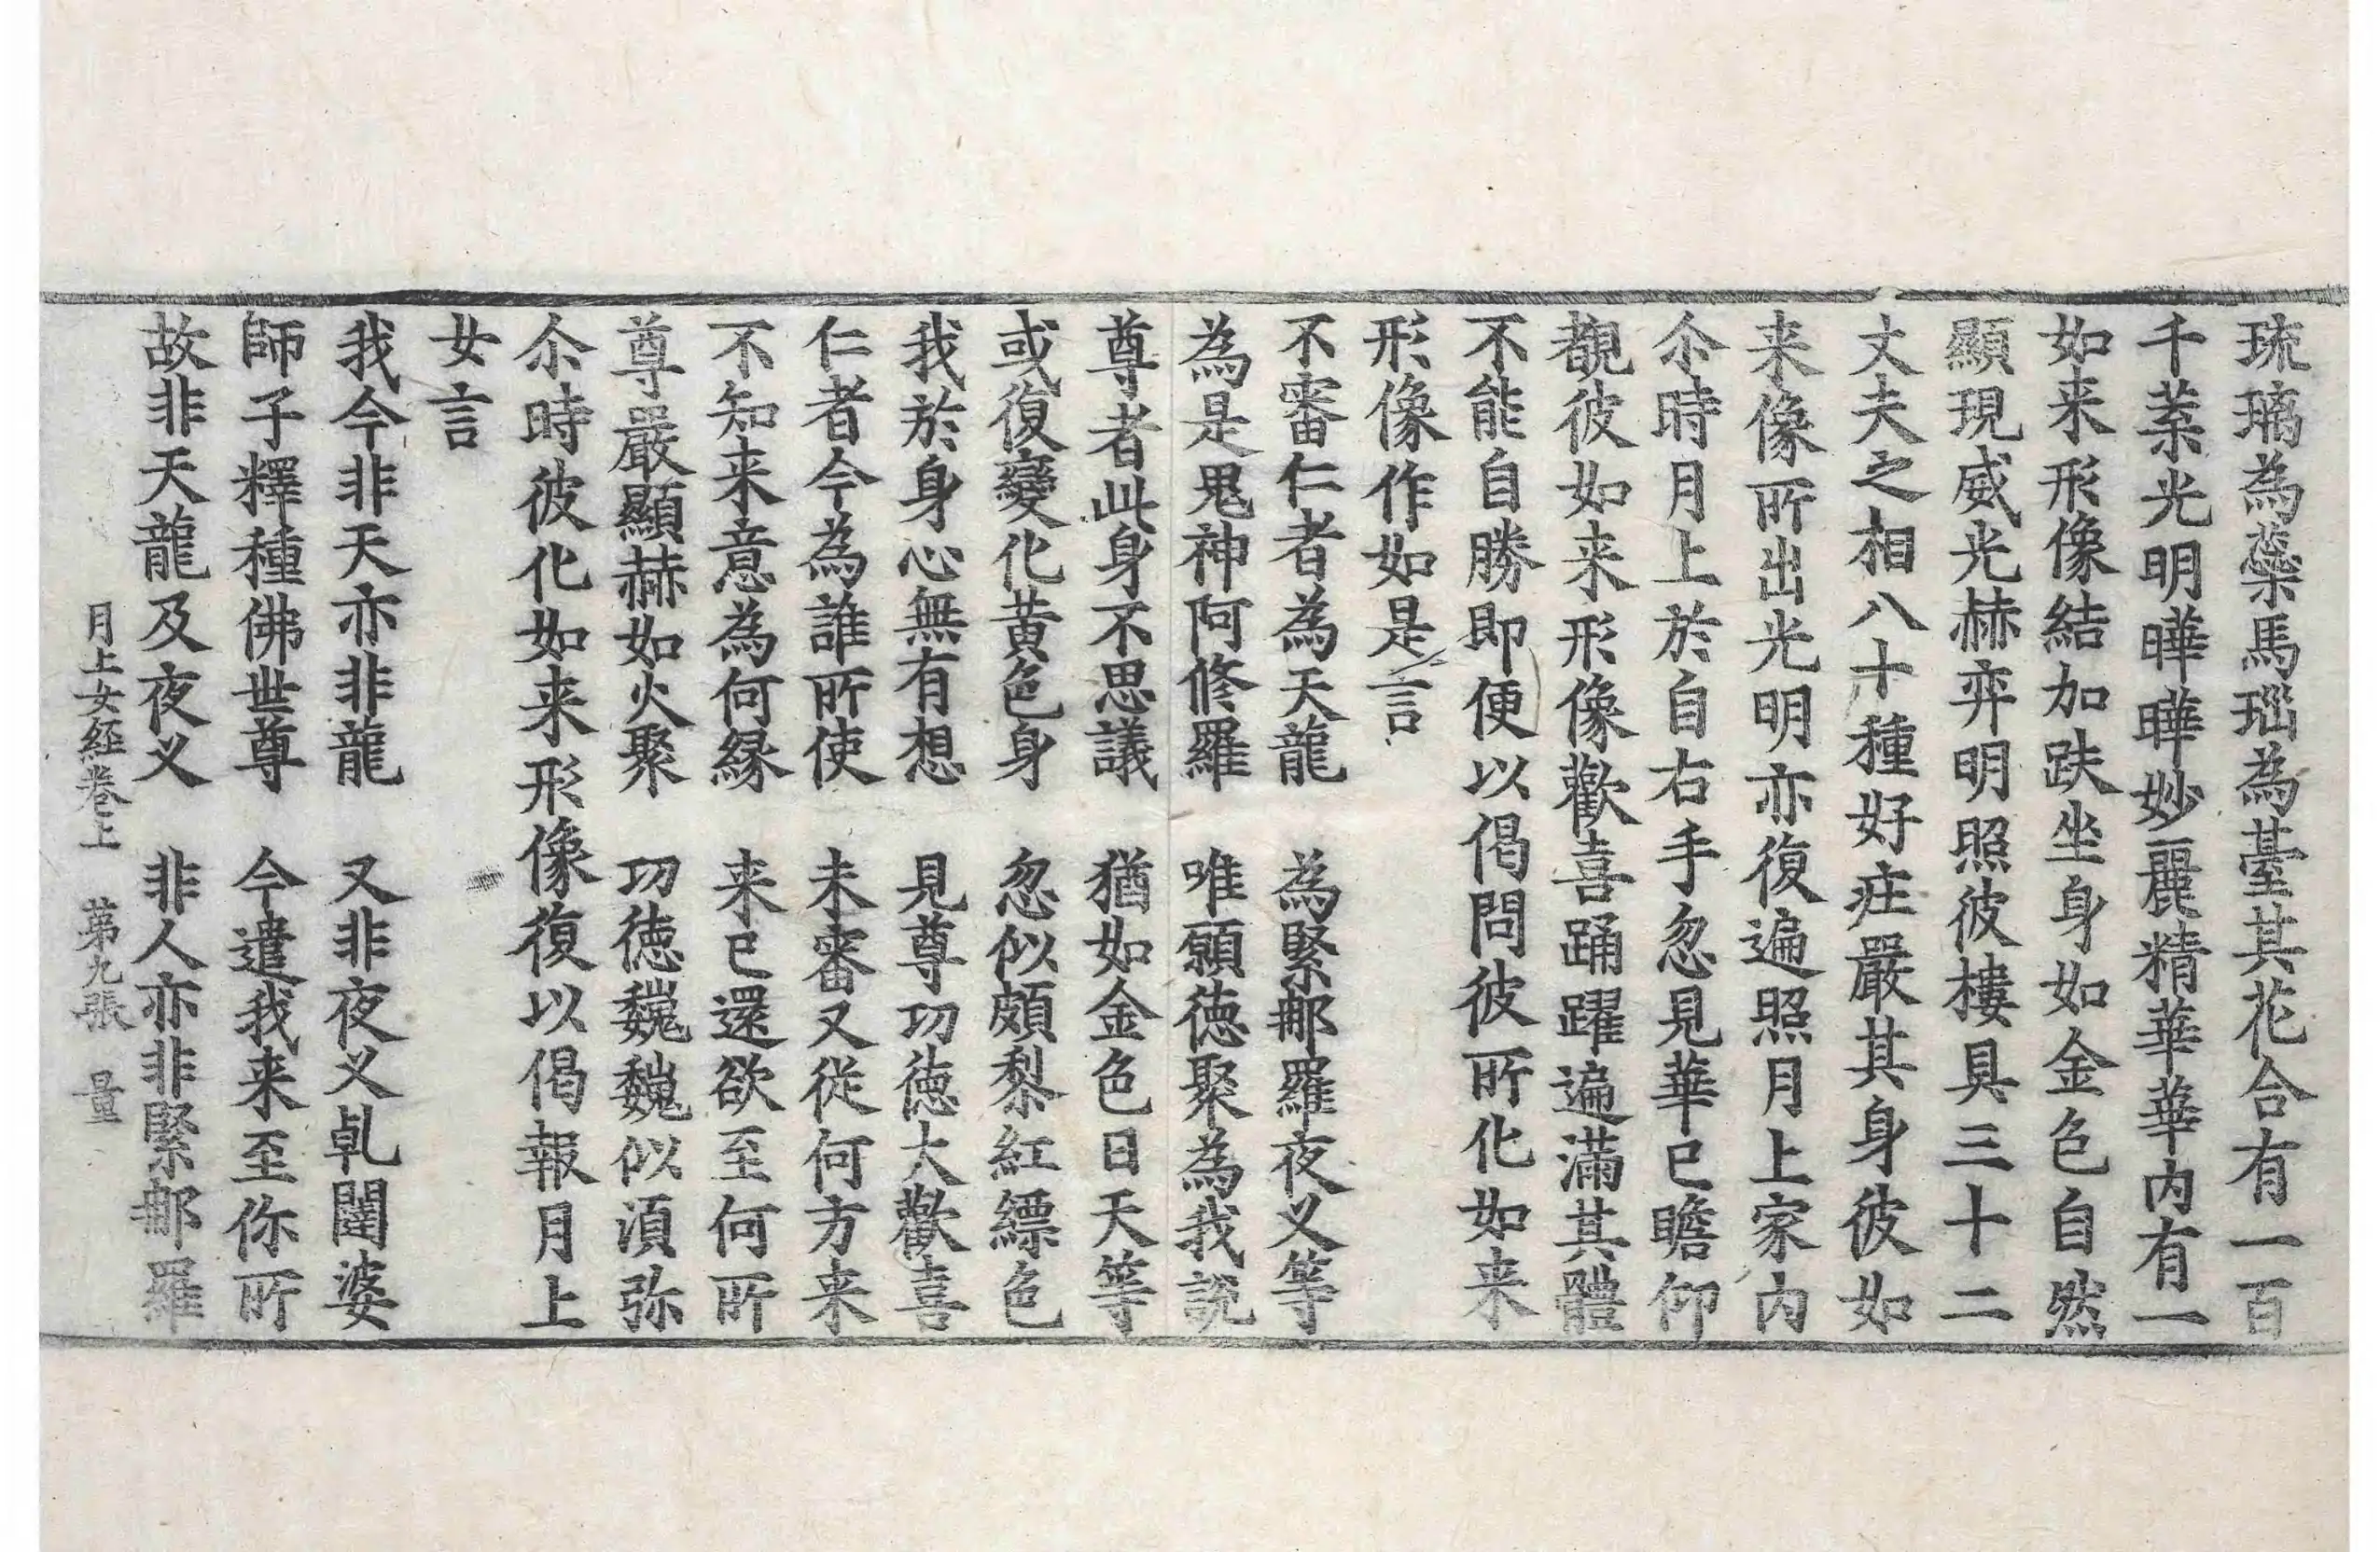 琉璃為蘂馬瑙為臺其花合有一百
千葉光明曄曄妙麗精華華内有一
如来形像結加趺坐身如金色自然
顯現威光赫弈明照彼樓具三十二
丈夫之相八十種好庄嚴其身彼如
来像所出光明亦復遍照月上家内
尒時月上於自右手忽見華已瞻仰
覩彼如来形像歡喜踊躍遍滿其體
不能自勝即便以偈問彼所化如来
形像作如是言
不審仁者為天龍　為緊那羅夜叉等
為是鬼神阿修羅　唯願徳聚為我說
尊者此身不思議　猶如金色日天等
或復變化黃色身　忽似頗黎紅縹色
我於身心無有想　見尊功徳大歡喜
仁者今為誰所使　未審又從何方来
不知来意為何縁　来已還欲至何所
尊嚴顯赫如火聚　功徳巍巍似湏弥
尒時彼化如来形像復以偈報月上
女言
我今非天亦非龍　又非夜叉乹闥婆
師子釋種佛世尊　今遣我来至你所
故非天龍及夜叉　非人亦非緊那羅
月上女経卷上　第九張　量